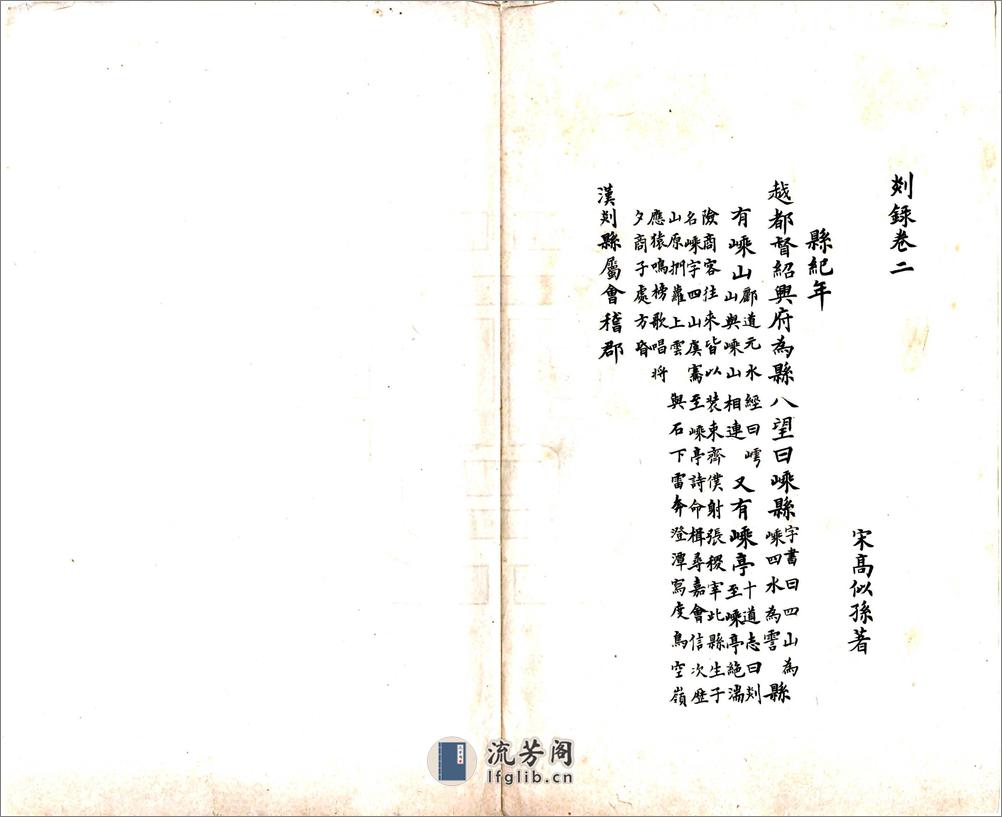 剡録卷二
宋高似孫著
縣紀年
越都督紹興府為縣八望曰嵊縣字書曰四山為嵊四水為縣
有嵊山酈道元水經曰山與嵊山相連又有嵊亭十道志曰剡至嵊亭絶濡
險商客往來皆以裝束齊僕射張稷宰此縣生子
名嵊字四山虞騫至嵊亭詩命楫尋嘉會信次歷
山原捫蘿上雲與石下雷奔澄潭寫度鳥空嶺
應猿鳴榜歌唱將
夕商子處方昏
漢剡縣屬會稽郡
流芳阁
lfglib.cn